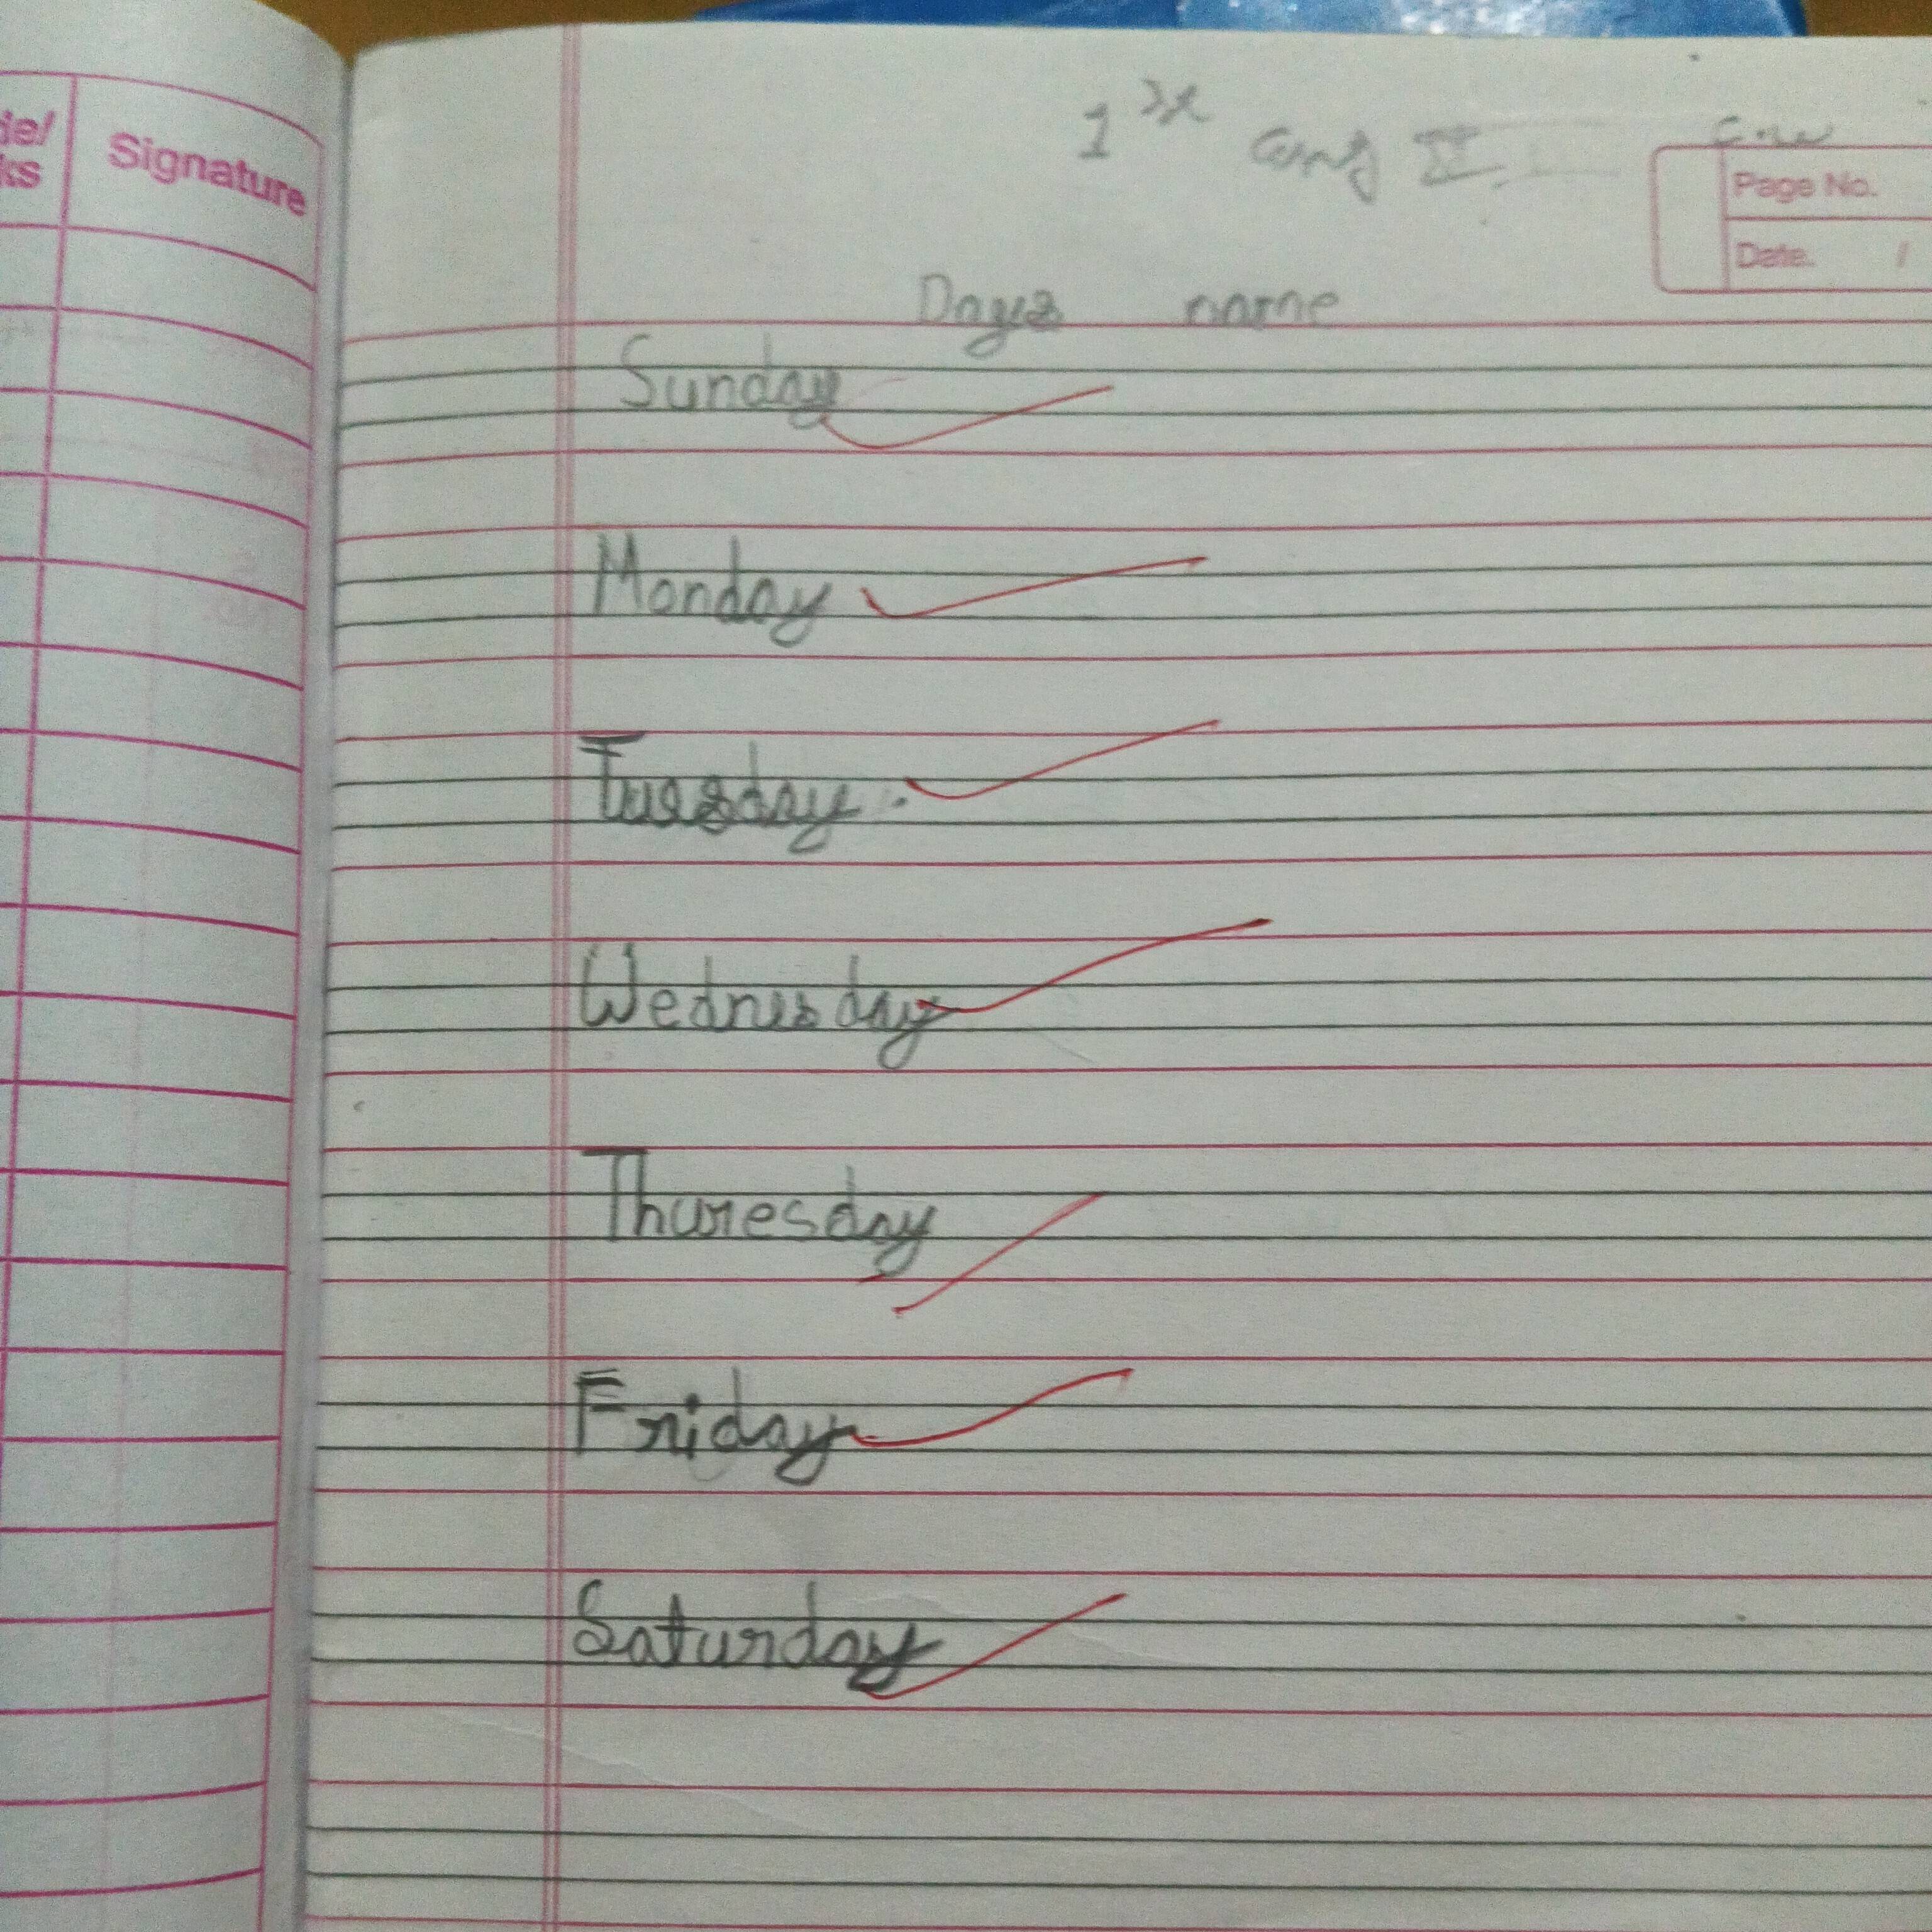 Signature
1
Eng II
Page No.
Date. /
Days name
Sunday
Monday
Tuesday.
Wednesday
Thuresday
Friday
Saturday